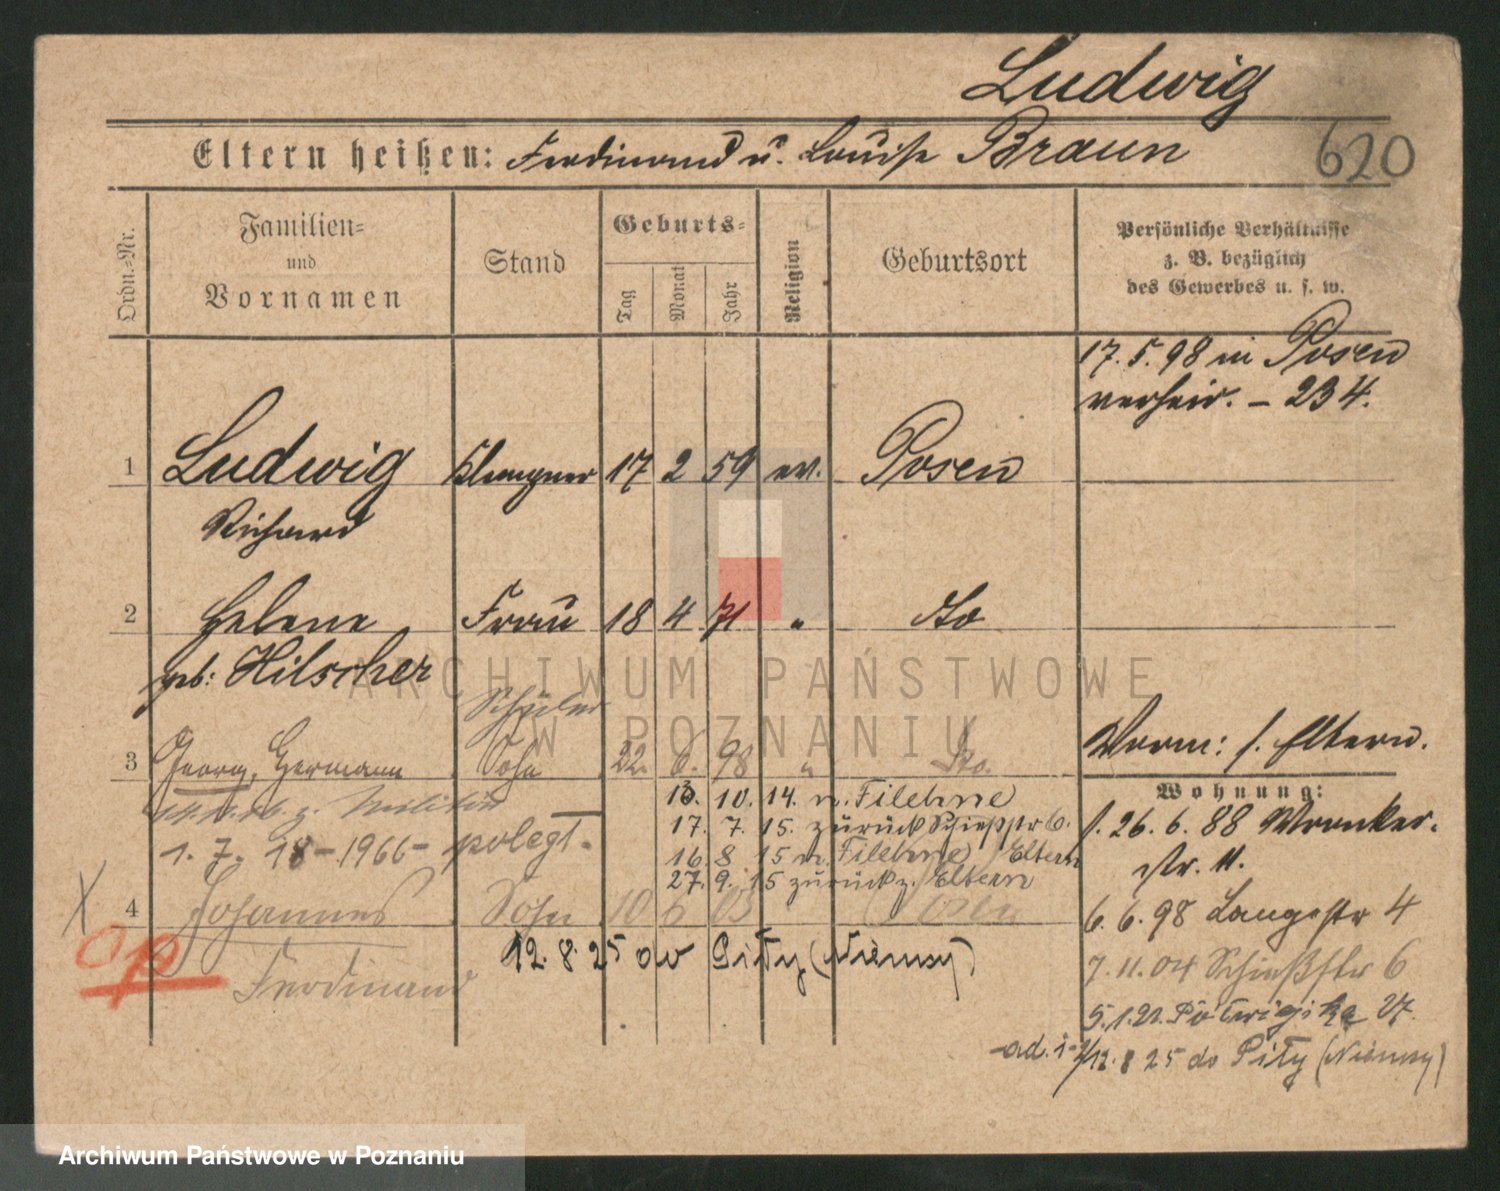 Ludwig
620
Eltern heißen: Ferdinand u. Louise Braun
Ordn.-Nr.
Familien- und Vornamen
Stand
Geburts-
Tag
Monat
Jahr
Religion
Geburtsort
Persönliche Verhältnisse
z. B. bezüglich
des Gewerbes u. s. w.
17. 5. 98 in Posen
verheir. – 234.
1 Ludwig Klempner 17 2 59 ev. Posen
Richard
2 Helene Frau 18 4 71 " do
geb: Hilscher
Schüler
3 Georg, Hermann Sohn 22. 6. 98 " do.
Vorm: s. Eltern.
z. Militär
1. 7. 18 – 1966 – poległ.
13. 10. 14. n. Filehne
17. 7. 15. zurück Schießstr 6.
16. 8 15 n. Filehne Eltern
27. 9. 15 zurück z. Eltern
Wohnung:
26. 6. 88 Wronker-
str. 11.
4 Johannes Sohn 10 6 03 Posen
Ferdinand
op
12. 8. 25 do Piły (Niemcy)
6. 6. 98 Langestr 4
7. 11. 04 Schießstr 6
5. 1. 21. Półwiejska 27.
ad. 1-2/12. 8 25 do Piły (Niemcy)
ARCHIWUM PAŃSTWOWE
W POZNANIU
Archiwum Państwowe w Poznaniu